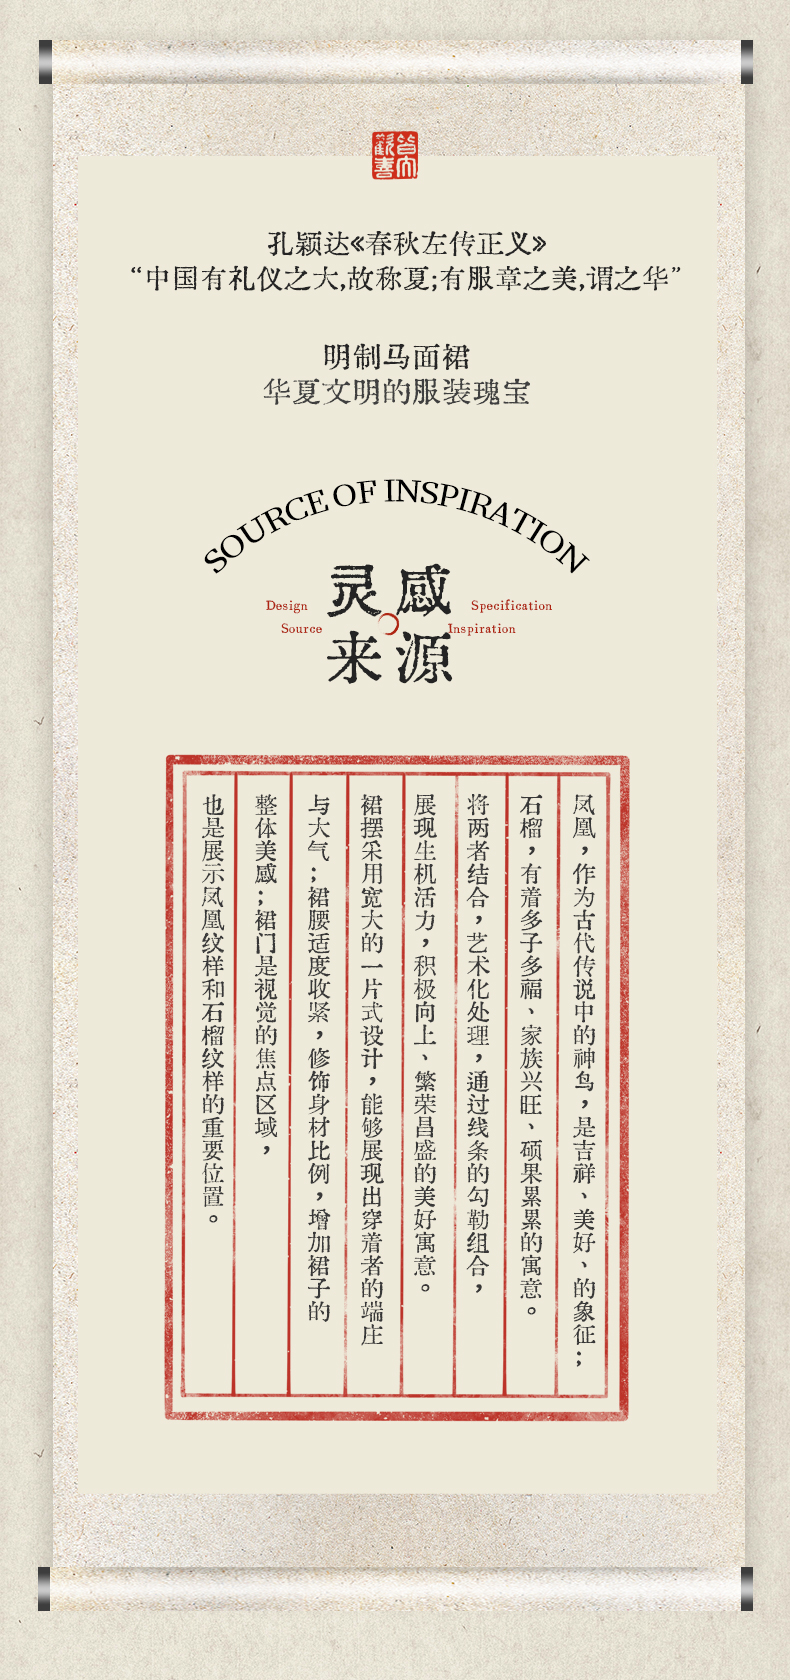 孔颖达《春秋左传正义》
“中国有礼仪之大,故称夏;有服章之美,谓之华”
明制马面裙
华夏文明的服装瑰宝
SOURCE OF INSPIRATION
灵感
来源
Design
Source
Specification
Inspiration
凤凰，作为古代传说中的神鸟，是吉祥、美好、的象征；
石榴，有着多子多福、家族兴旺、硕果累累的寓意。
将两者结合，艺术化处理，通过线条的勾勒组合，
展现生机活力，积极向上、繁荣昌盛的美好寓意。
裙摆采用宽大的一片式设计，能够展现出穿着者的端庄
与大气；裙腰适度收紧，修饰身材比例，增加裙子的
整体美感；裙门是视觉的焦点区域，
也是展示凤凰纹样和石榴纹样的重要位置。